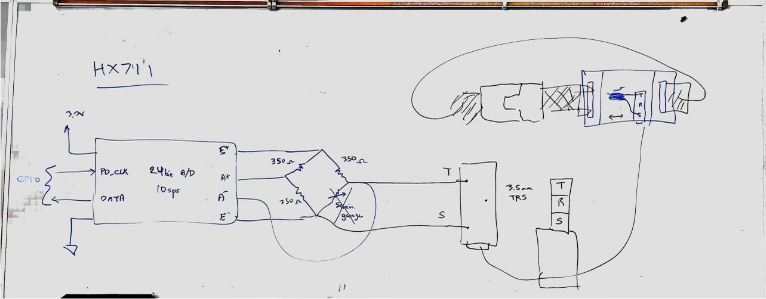 HX711
3.3V
GPIO
PD_CLK
DATA
24bit A/D
10sps
E+
A+
A-
E-
350Ω
350Ω
350Ω
Strain
gauge
T
S
3.5mm
TRS
T
R
S
T
R
S